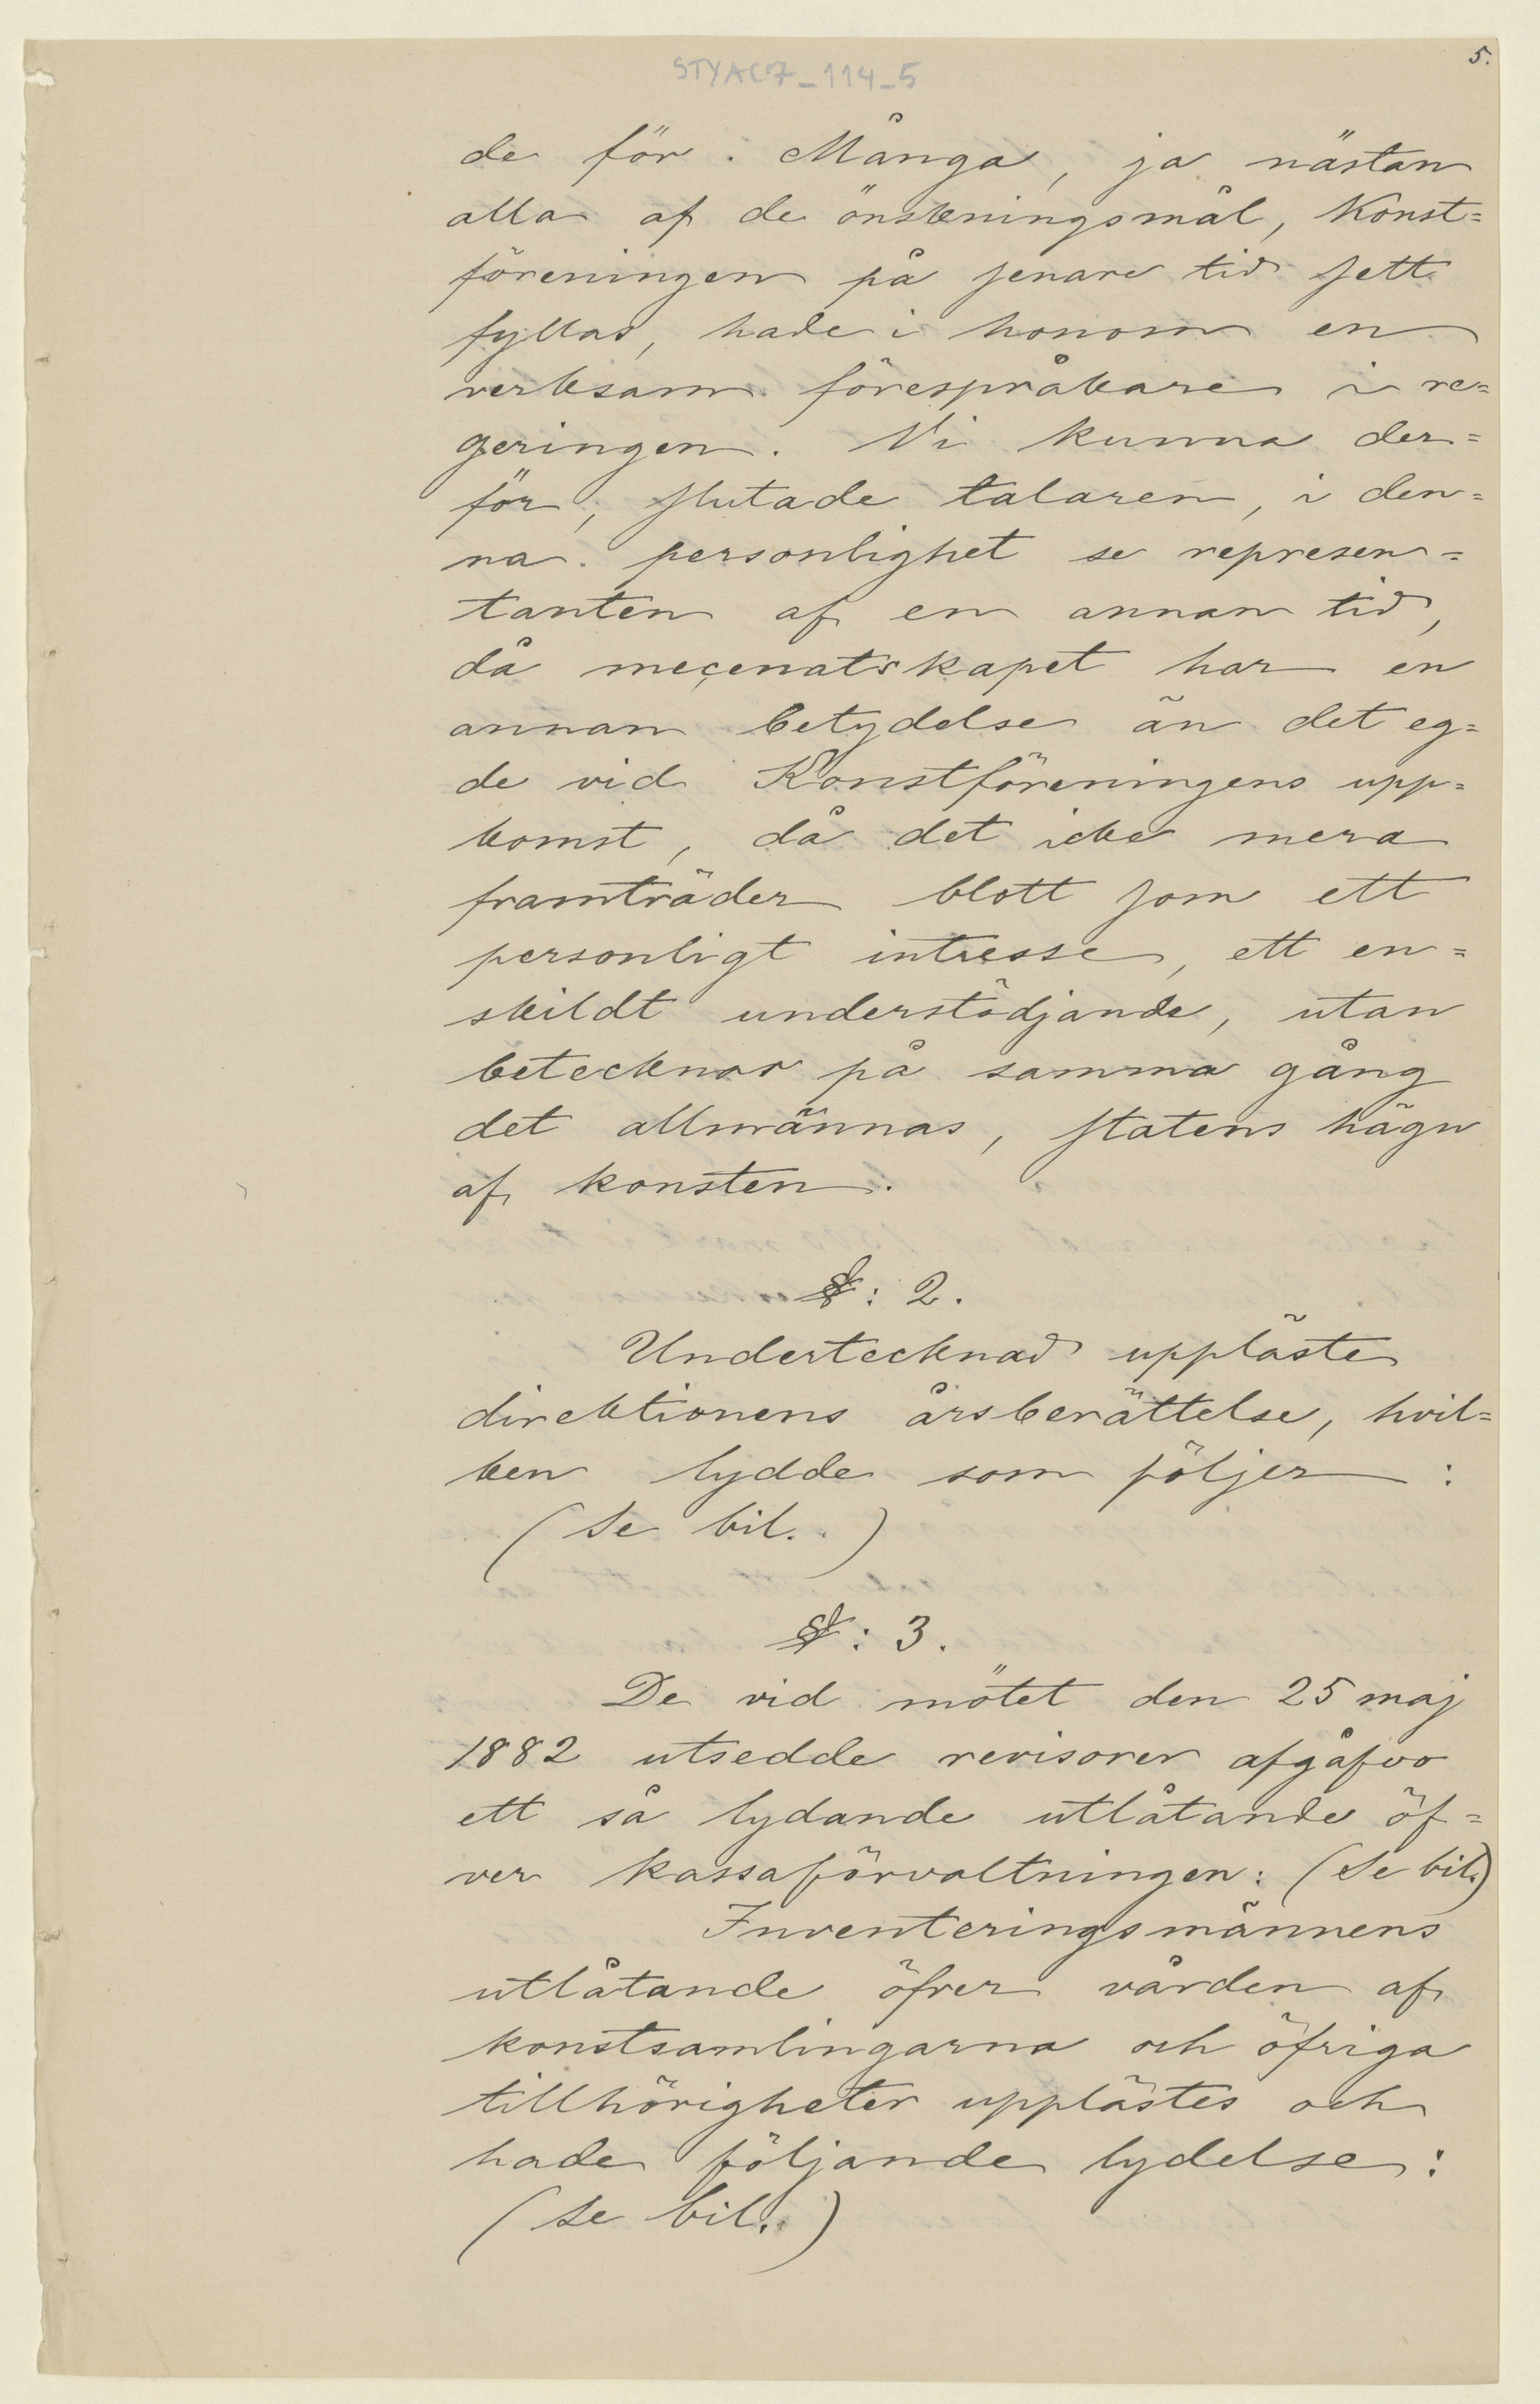 5.
STYAC7_114_5
de för. Många, ja nästan
alla af de önskningsmål, Konst=
föreningen på senare tid sett
fyllas, hade i honom en
verksam förespråkare i re=
geringen. Vi kunna der=
för, slutade talaren, i den=
na personlighet se represen=
tanten af en annan tid,
då meçenatskapet har en
annan betydelse än det eg=
de vid Konstföreningens upp=
komst, då det icke mera
framträder blott som ett
personligt intresse, ett en=
skildt understödjande, utan
betecknar på samma gång
det allmännas, statens hägn
af konsten.
§: 2.
Undertecknad uppläste
direktionens årsberättelse, hvil=
ken lydde som följer :
(Se bil. )
§: 3.
De vid mötet den 25 maj
1882 utsedde revisorer afgåfvo
ett så lydande utlåtande öf=
ver kassaförvaltningen: (Se bil.)
Inventeringsmännens
utlåtande öfver vården af
konstsamlingarna och öfriga
tillhörigheter upplästes och
hade följande lydelse:
(Se bil. )